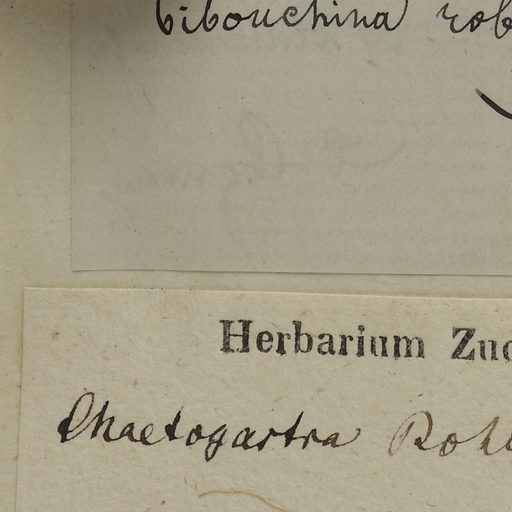 Tibouchina rob
Herbarium Zuc
Chaetogastra Rohl